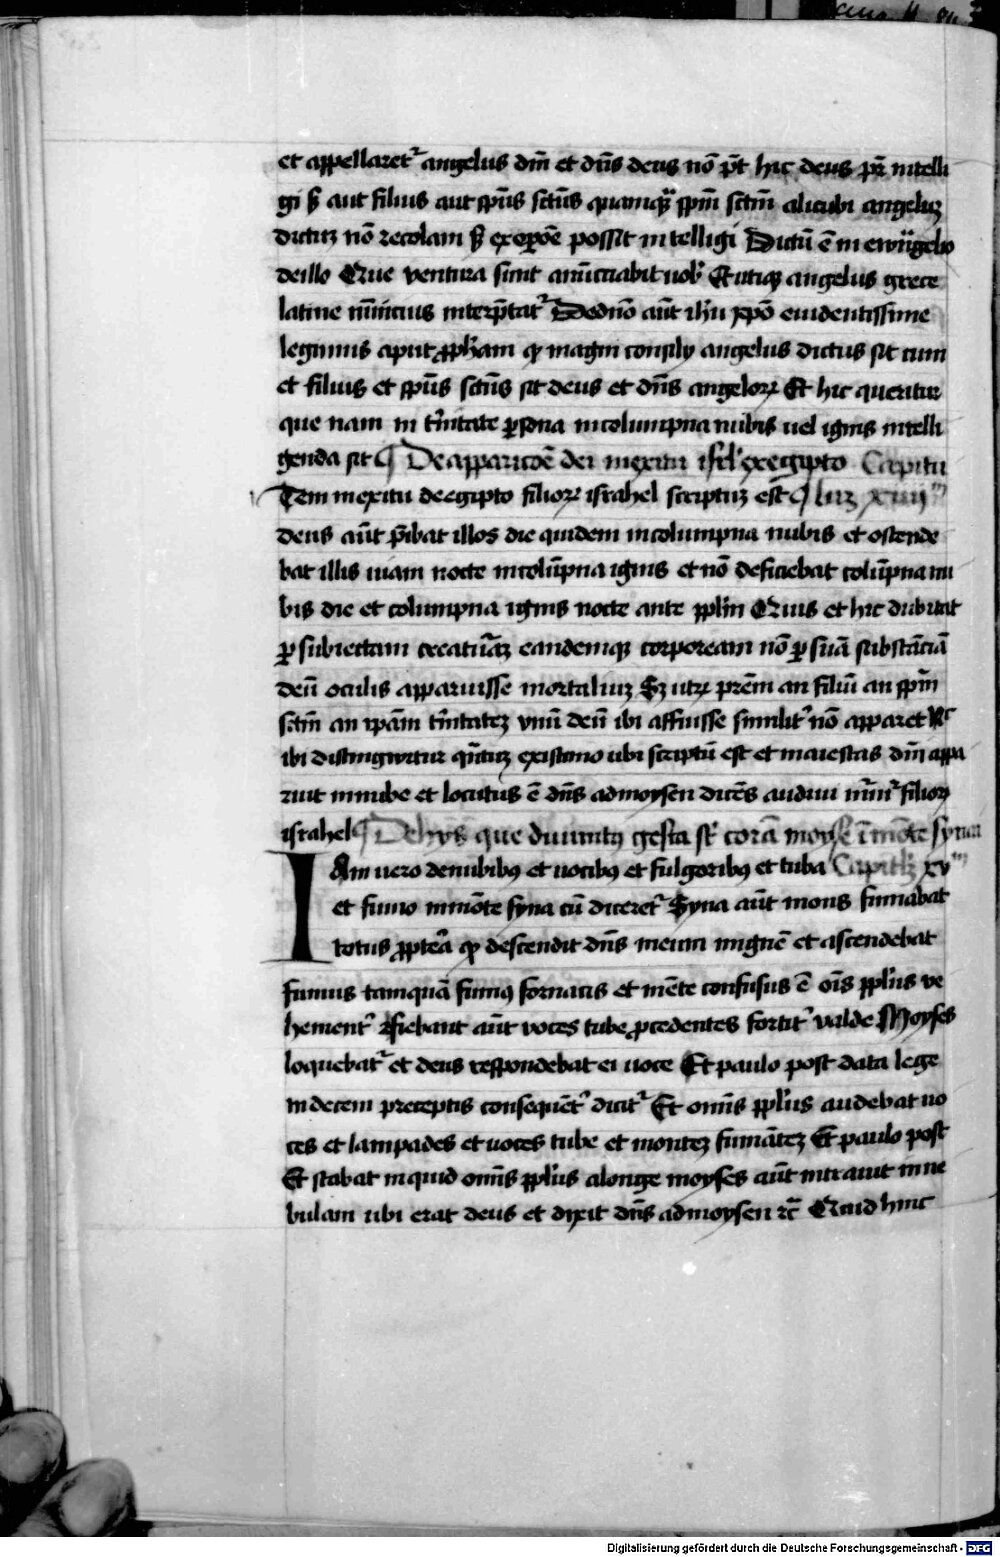 et appellaret᷑ angelus dñi et dñs deus nõ pōt hic deus pr̄ intelli
gi sʒ aut filius aut spūs sctūs quamqꝫ spm̄ sctm̄ alicubi angeluʒ
dictuʒ nõ recolam sʒ ex oꝑe possit intelligi Dictū ē in ewāgelio
de illo Que ventura sunt anūcciabit uob᷒ Et utiqꝫ angelus grece
latine nūncius interp̄tat᷑ De dño aūt ihū xp̄o euidentissime
legimus aput ꝓph̄am ꝙ magni consilij angelus dictus sit cum
et filius et spūs sctūs sit deus et dñs angeloꝝ Et hic queritur
que nam in t̄initate ꝑsona in columpna nubis uel ignis intelli
genda sit ¶ De apparicōe dei in exitu isrl̄ ex egipto Capitu
Tem in exitu de egipto filioꝝ israhel scriptuʒ est ¶ luʒ xiiijᵐ
deus aūt p̄ibat illos die quidem in columpna nubis et ostende
bat illis uiam nocte in colūpna ignis et nõ deficiebat colūpna nu
bis die et columpna ignis nocte ante ppl̄m Quis et hic dubitat
ꝑ subiectam creatūaʒ eandemqꝫ corpoream nõ ꝑ suā substāciā
deū oculis apparuisse mortaliuʒ Sʒ utꝝ prēm an filiū an spm̄
sctm̄ an ipām t̄initateʒ vnū deū ibi affuisse similit᷑ nõ apparet Nc̄
ibi distingwitur q̄ntuʒ existimo ubi scriptū est et maiestas dñi appa
ruit in nube et locutus ē dñs ad moysen dicēs audiui mur̄mr̄ filioꝝ
israhel ¶ De hijs que diuinitꝰ gesta st̄ corā moyse ī mōte syna
IAm uero de nubibꝫ et uocibꝫ et fulgoribꝫ et tuba Capitlʒ xvᵐ
et fumo in mōte syna cū diceret᷑ Syna aūt mons fumabat
totus ꝓptea᷑ ꝙ descendit dñs in eum in ignē et ascendebat
fumus tamquā fumꝰ fornacis et mēte confusus ē oīs ppl̄us ve
hement᷑ fiebant aūt voces tube ꝓcedentes fortit᷑ valde Moyses
loquebat᷑ et deus respondebat ei uoce Et paulo post data lege
in decem preceptis consequēt᷑ dicit᷑ Et omīs ppl̄us audebat uo
ces et lampades et uoces tube et monteʒ fumāteʒ Et paulo post
Et stabat inquid omīs ppl̄us a longe moyses aūt intrauit in ne
bulam ubi erat deus et dixit dñs ad moysen ⁊c̄ Quid hinc
Digitalisierung gefördert durch die Deutsche Forschungsgemeinschaft - DFG